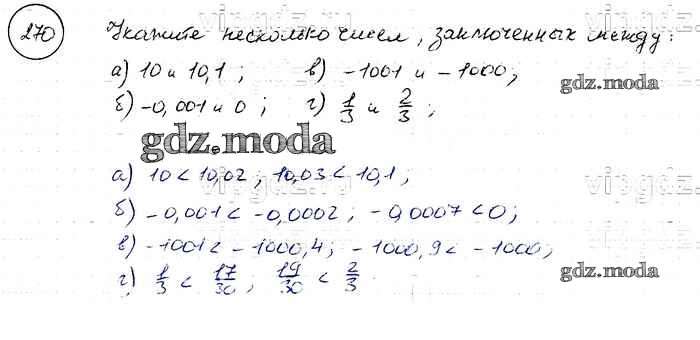 270 Укажите несколько чисел, заключенных между:
а) 10 и 10,1; в) -1001 и -1000;
б) -0,001 и 0; г) 1/3 и 2/3;
gdz.moda
gdz.moda
а) 10 < 10,02; 10,03 < 10,1;
б) -0,001 < -0,0002; -0,0007 < 0;
gdz.moda
в) -1001 < -1000,4; -1000,9 < -1000;
г) 1/3 < 17/30; 19/30 < 2/3
gdz.moda